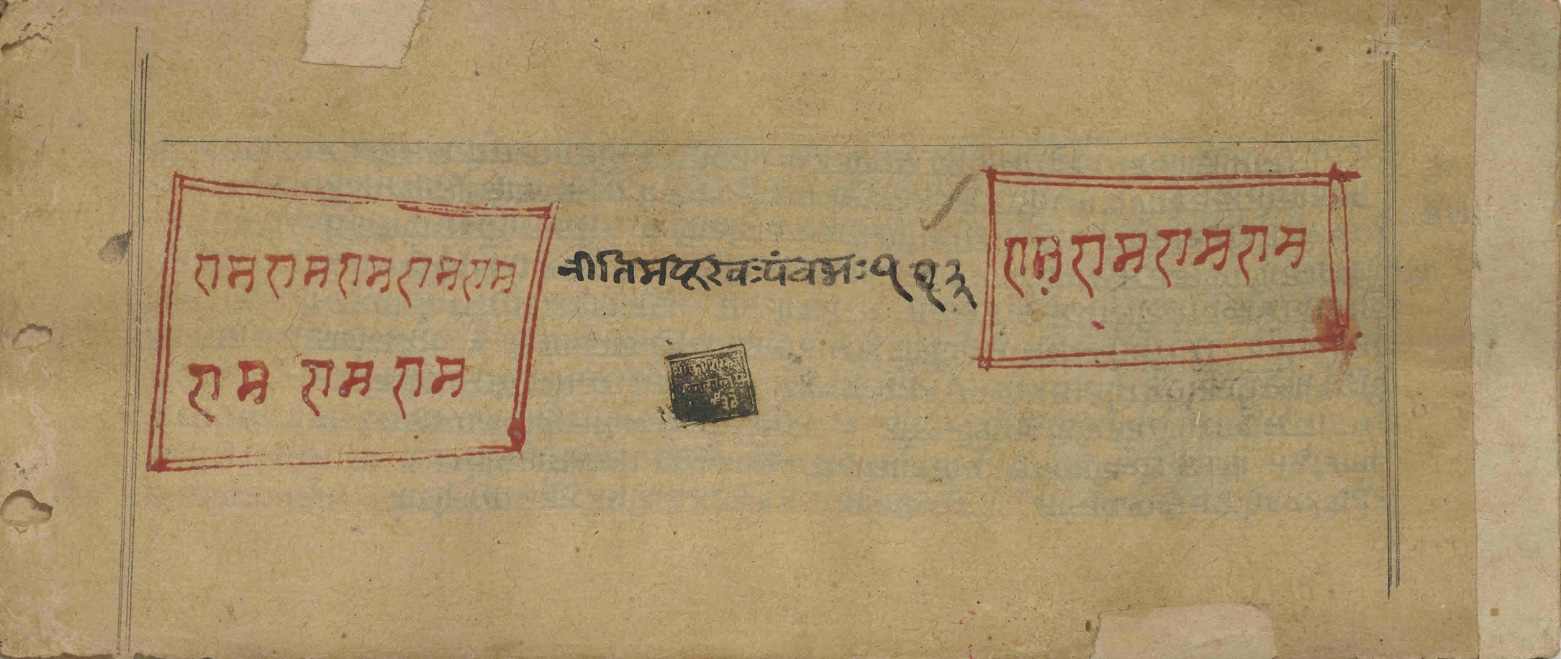 राम राम राम राम राम
राम राम राम
नीतिमयूरवः पंचमः ११३
राम राम राम राम